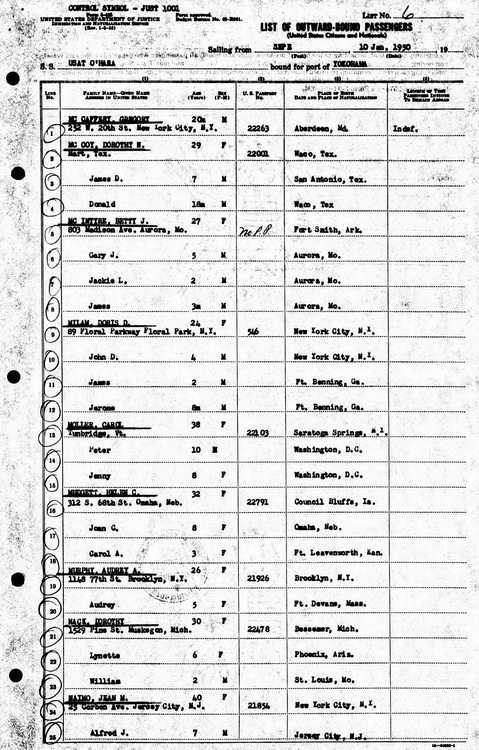 CONTROL SYMBOL - JUST 1001
UNITED STATES DEPARTMENT OF JUSTICE
IMMIGRATION AND NATURALIZATION SERVICE
Form approved.
LIST No. 6
LIST OF OUTWARD-BOUND PASSENGERS
(United States Citizens and Nationals)
Sailing from SFPE 10 Jan. 1950 19
(Port) (Date)
S. S. USAT O'HARA bound for port of YOKOHAMA
(1) (2) (3) (4) (5)
LINE No. FAMILY NAME—GIVEN NAME ADDRESS IN UNITED STATES AGE (Years) SEX (F-M) U. S. PASSPORT No. PLACE OF BIRTH DATE AND PLACE OF NATURALIZATION LENGTH OF TIME PASSENGER INTENDS TO REMAIN ABROAD
MC CAFFERY, GREGORY 20m M
1 232 W. 20th St. New York City, N.Y. 22263 Aberdeen, Md. Indef.
MC COY, DOROTHY N. 29 F
2 Mart, Tex. 22001 Waco, Tex.
3 James D. 7 M San Antonio, Tex.
4 Donald 18m M Waco, Tex
MC INTYRE, BETTY J. 27 F
5 803 Madison Ave. Aurora, Mo. no P.P. Fort Smith, Ark.
6 Gary J. 5 M Aurora, Mo.
7 Jackie L. 2 M Aurora, Mo.
8 James 3m M Aurora, Mo.
MILAM, DORIS D. 24 F
9 89 Floral Parkway Floral Park, N.Y. 546 New York City, N.Y.
10 John D. 4 M New York City, N.Y.
11 James 2 M Ft. Benning, Ga.
12 Jerome 8m M Ft. Benning, Ga.
MOLLER, CAROL 38 F
13 Tunbridge, Vt. 22103 Saratoga Springs, N.Y.
14 Peter 10 M Washington, D.C.
15 Jenny 8 F Washington, D.C.
HELEN C. 32 F
16 312 S. 68th St. Omaha, Neb. 22791 Council Bluffs, Ia.
17 Joan G. 8 F Omaha, Neb.
18 Carol A. 3 F Ft. Leavenworth, Kan.
MURPHY, AUDREY A. 26 F
19 1148 77th St. Brooklyn, N.Y. 21926 Brooklyn, N.Y.
20 Audrey 5 F Ft. Devans, Mass.
MACK, DOROTHY 30 F
21 1529 Pine St. Muskegon, Mich. 22478 Bessemer, Mich.
22 Lynette 6 F Phoenix, Ariz.
23 William 2 M St. Louis, Mo.
NAIMO, JEAN M. 40 F
24 25 Corbon Ave. Jersey City, N.J. 21854 New York City, N.Y.
25 Alfred J. 7 M Jersey City, N.J.